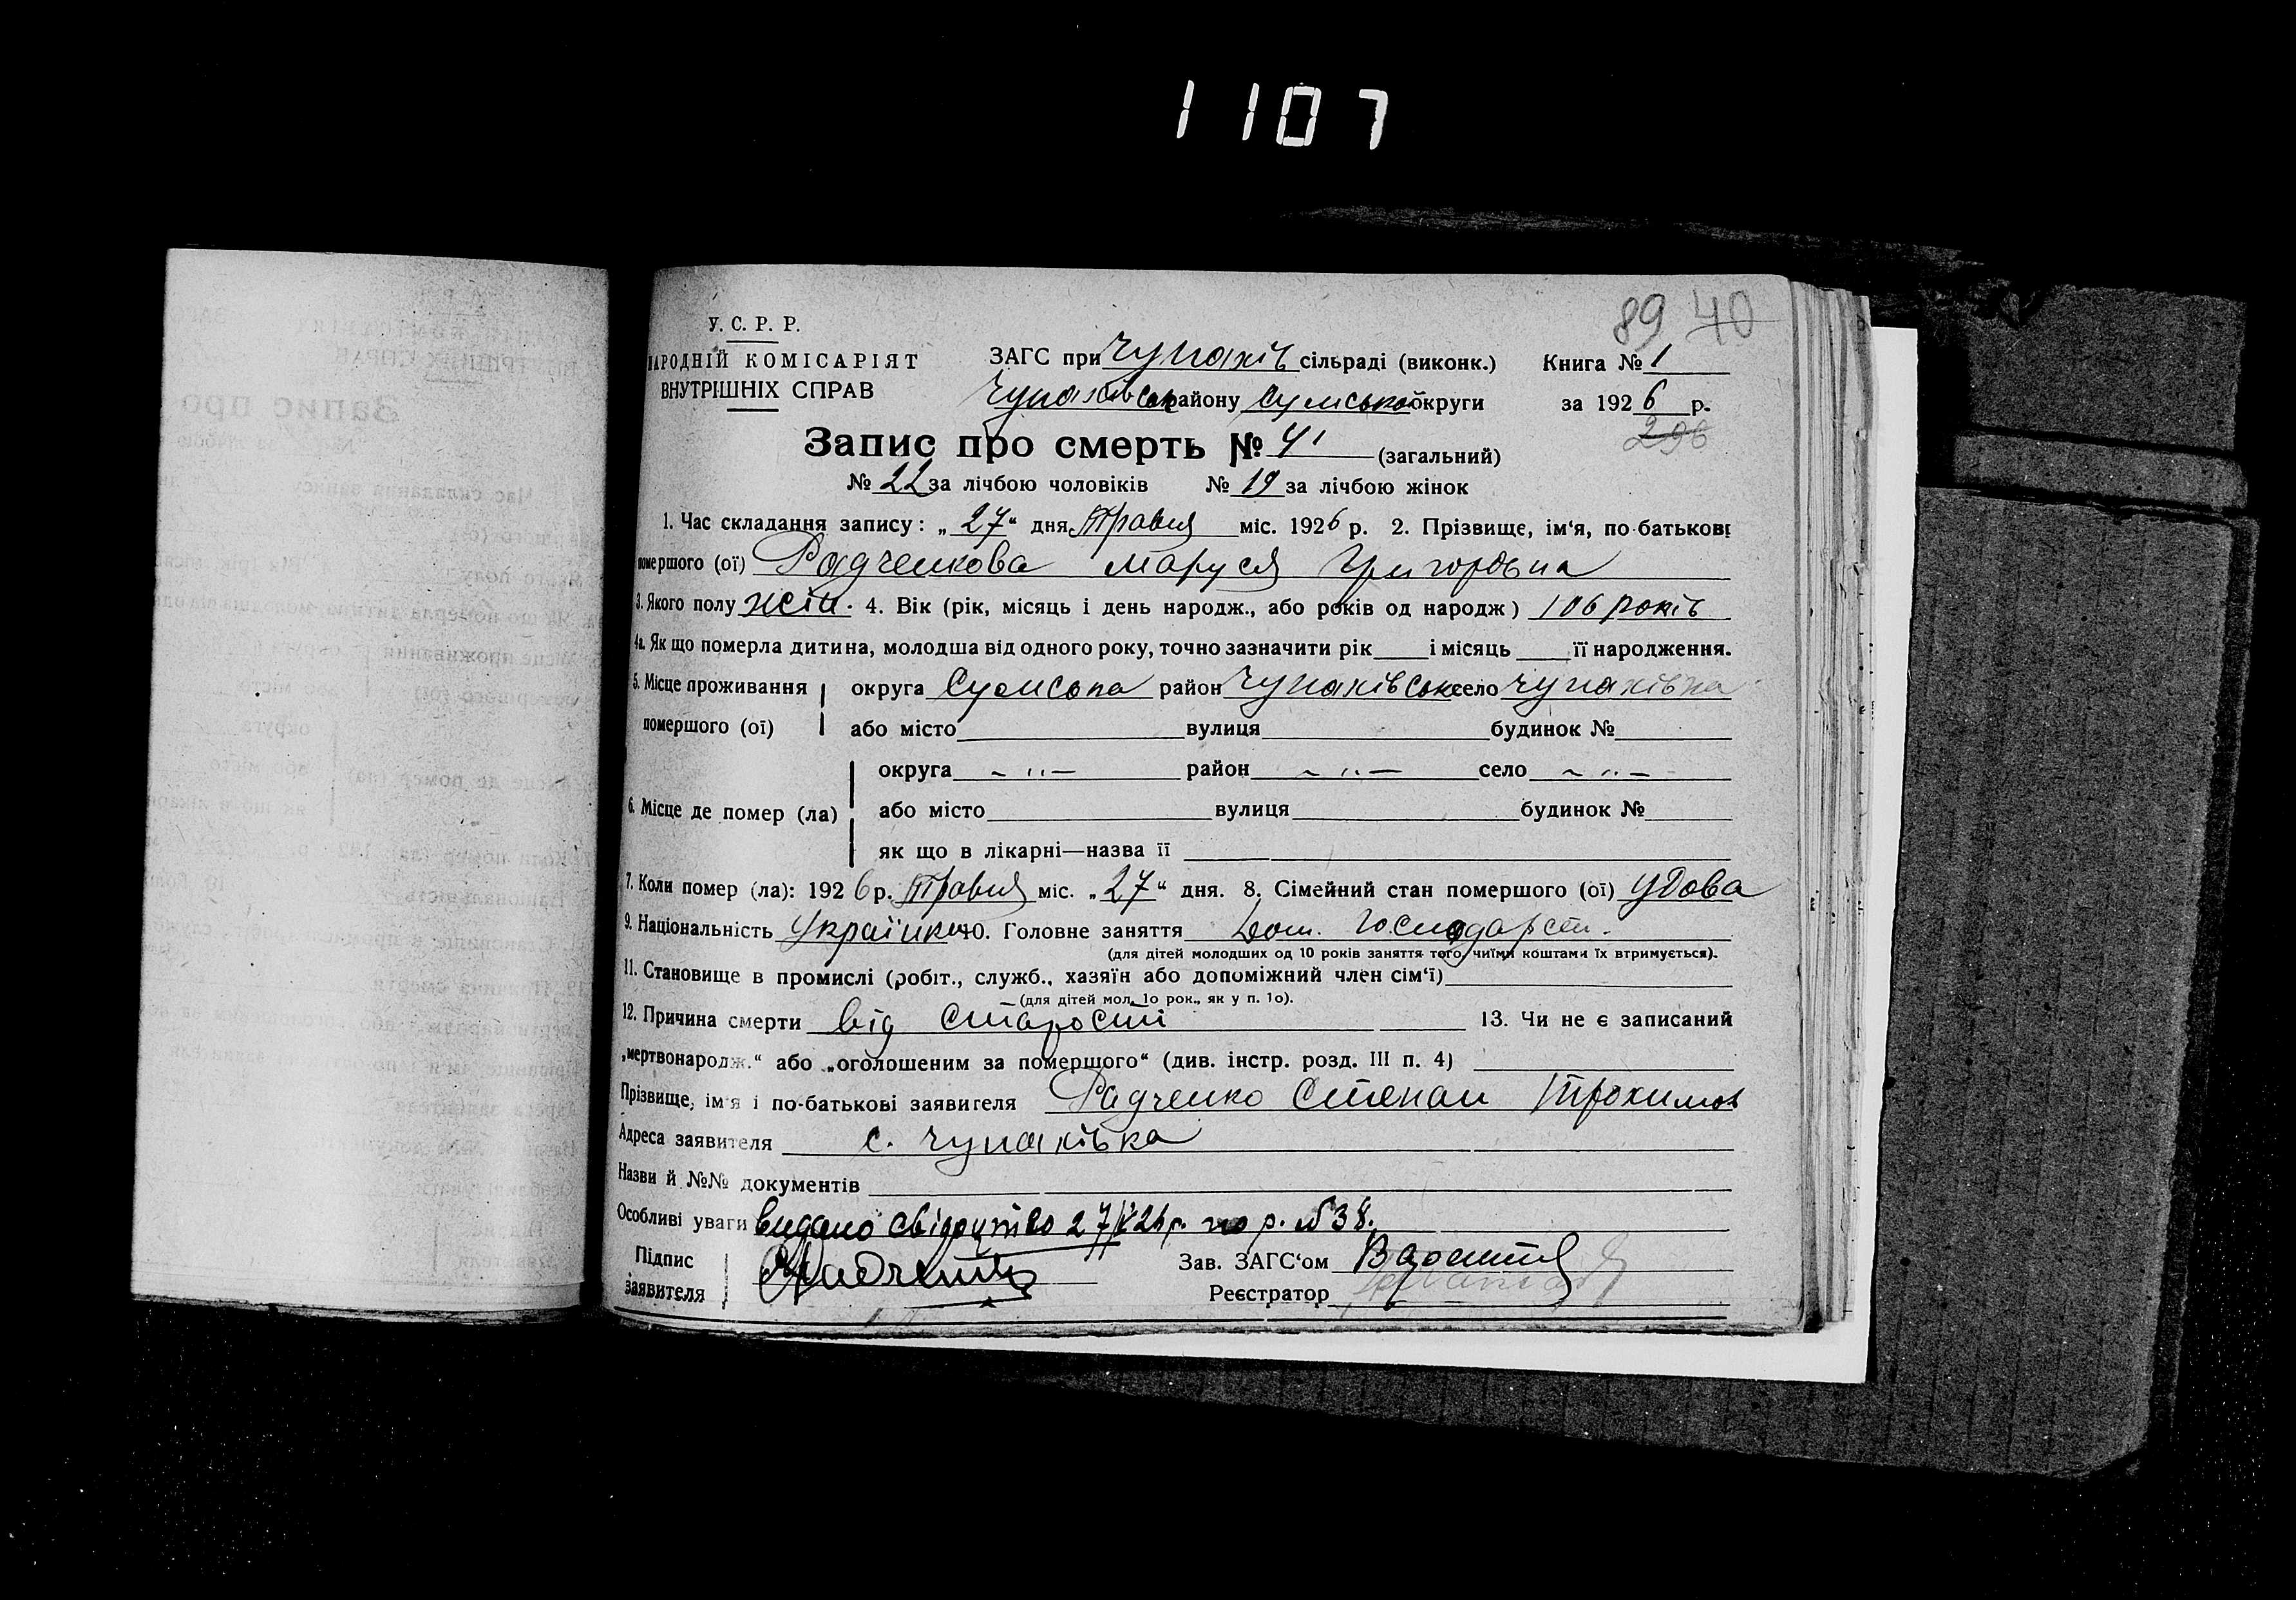 1107
89 40
У. С. Р. Р.
НАРОДНІЙ КОМІСАРІЯТ
ВНУТРІШНІХ СПРАВ
ЗАГС при Чупахів сільраді (виконк.) Книга № 1
Чупахівськ району Сумсько округи за 1926 р.
296
Запис про смерть № 41 (загальний)
№ 22 за лічбою чоловіків № 19 за лічбою жінок
1. Час складання запису: „27“ дня Травня міс. 1926 р. 2. Прізвище, ім‘я, по-батькові
помершого (ої) Радченкова Маруся Григоровна
3. Якого полу жін. 4. Вік (рік, місяць і день народж., або років од народж) 106 років
4а. Як що померла дитина, молодша від одного року, точно зазначити рік і місяць її народження.
5. Місце проживання округа Сумська район Чупахівськ село Чупахівка
помершого (ої) або місто вулиця будинок №
округа – „ – район – „ – село – „ –
6. Місце де помер (ла) або місто вулиця будинок №
як що в лікарні—назва її
7. Коли помер (ла): 1926 р. Травня міс. „27“ дня. 8. Сімейний стан помершого (ої) удова
9. Національність Українка 10. Головне заняття Дом. господарст.
(для дітей молодших од 10 років заняття того, чиїми коштами їх втримується).
11. Становище в промислі (робіт., служб., хазяїн або допоміжний член сім‘ї)
(для дітей мол. 1о рок., як у п. 1о).
12. Причина смерти від старости 13. Чи не є записаний
„мертвонародж.“ або „оголошеним за помершого“ (див. інстр. розд. III п. 4)
Прізвище, ім‘я і по-батькові заявителя Радченко Степан Трохимов
Адреса заявителя с. Чупахівка
Назви й №№ документів
Особливі уваги видано свідоцтво 27/V 26 р. по р. №38.
Підпис
заявителя Радченко
Зав. ЗАГС‘ом
Реєстратор